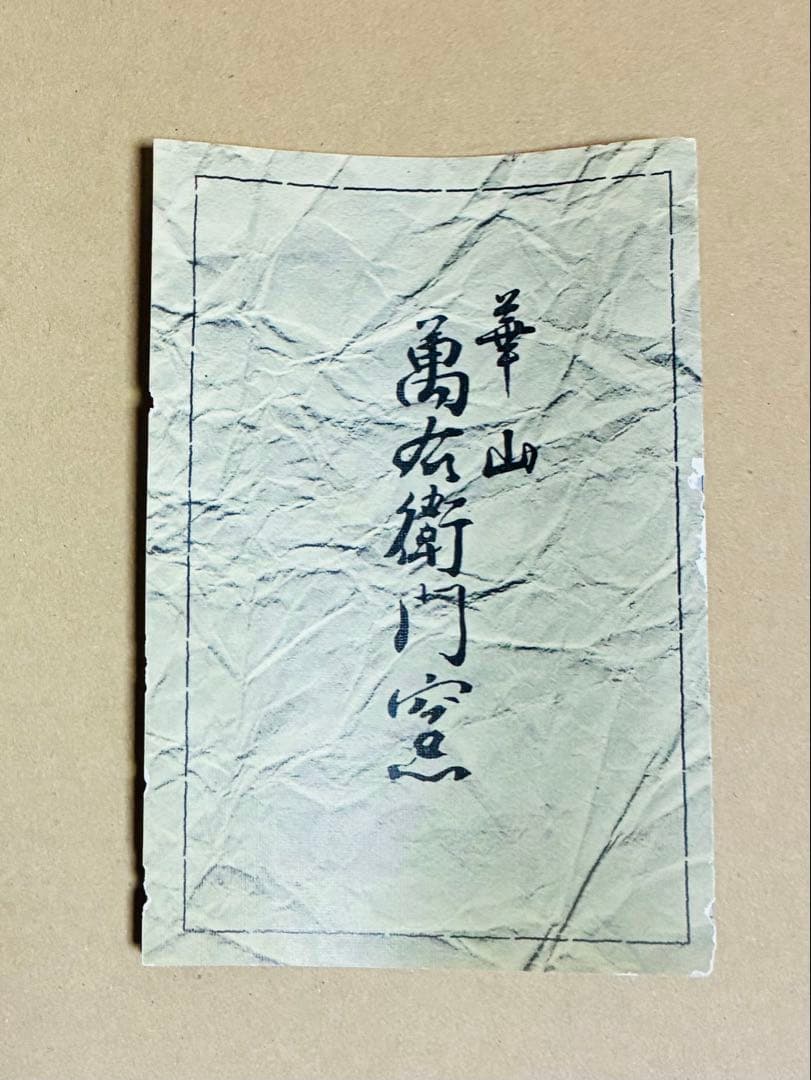 華山
萬右衛門窯